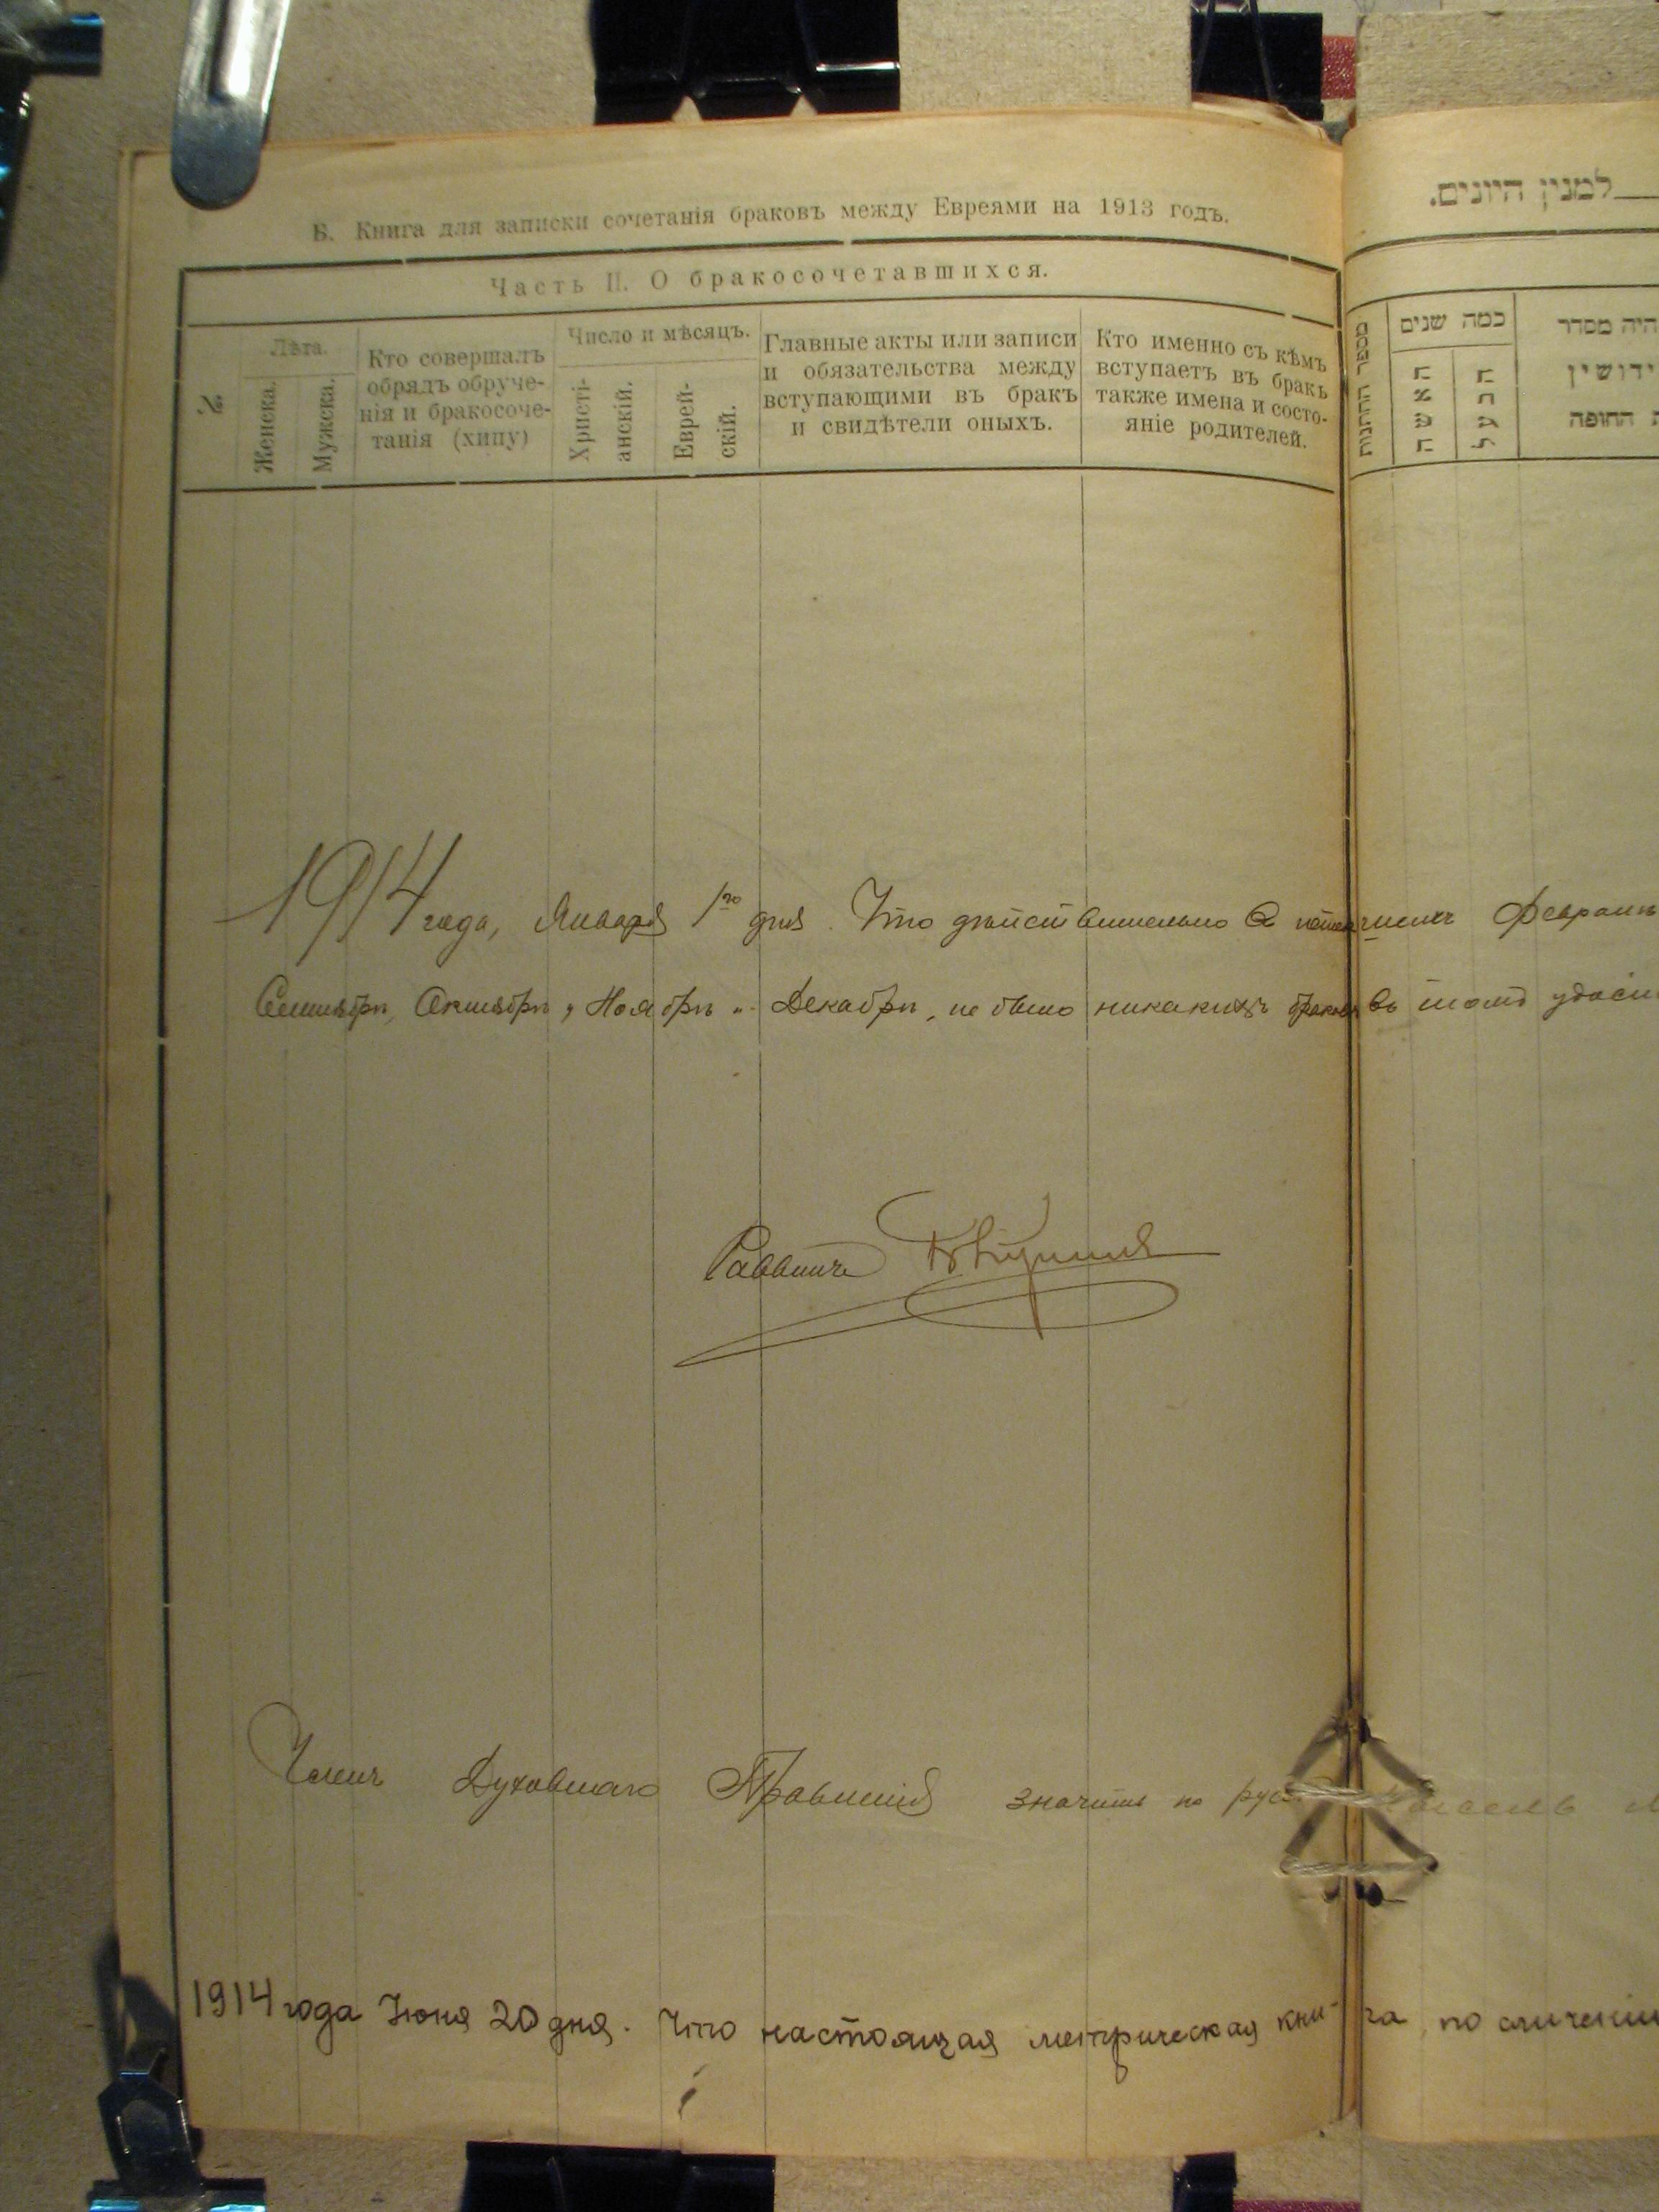 Б. Книга для записки сочетанія браковъ между Евреями на 1913 годъ.
Часть II. О бракосочетавшихся.
№
Лѣта.
Женска.
Мужска.
Кто совершалъ
обрядъ обруче-
нія и бракосоче-
танія (хипу)
Число и мѣсяцъ.
Христі-
анскій.
Еврей-
скій.
Главные акты или записи
и обязательства между
вступающими въ бракъ
и свидѣтели оныхъ.
Кто именно съ кѣмъ
вступаетъ въ бракъ
также имена и состо-
яніе родителей.
למנין היונים.
מספר החתונות
כמה שנים
האשה
הבעל
היה מסדר
ידושין
החופה
1914 года, Января 1го дня. Что дѣйствительно в Февралѣ
Сентябрѣ, Октябрѣ, Ноябрѣ и Декабрѣ, не было никакихъ браковъ въ томъ
Раввинъ
Членъ Духовнаго Правленія значитъ по
1914 года Іюня 20 дня. Что настоящая метрическая книга, по сличеніи